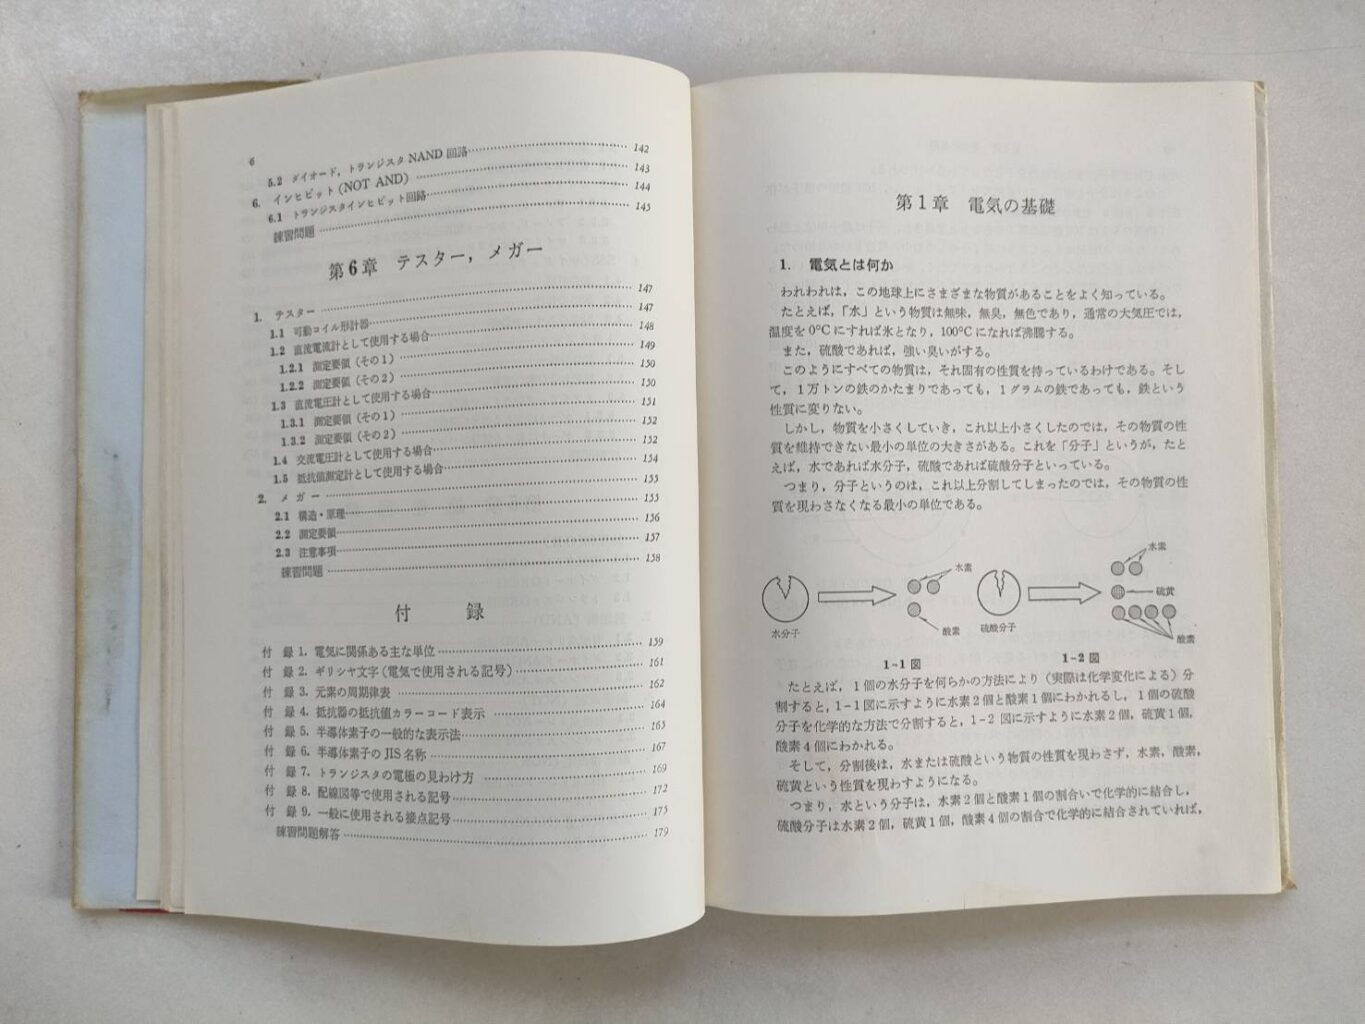 6
5.2 ダイオード，トランジスタNAND回路 142
6. インヒビット(NOT AND) 143
6.1 トランジスタインヒビット回路 144
練習問題 145
第6章 テスター，メガー
1. テスター 147
1.1 可動コイル形計器 147
1.2 直流電流計として使用する場合 148
1.2.1 測定要領（その1） 149
1.2.2 測定要領（その2） 150
1.3 直流電圧計として使用する場合 150
1.3.1 測定要領（その1） 151
1.3.2 測定要領（その2） 152
1.4 交流電圧計として使用する場合 152
1.5 抵抗値測定計として使用する場合 154
2. メガー 155
2.1 構造・原理 155
2.2 測定要領 156
2.3 注意事項 157
練習問題 158
付録
付録1. 電気に関係ある主な単位 159
付録2. ギリシヤ文字(電気で使用される記号) 161
付録3. 元素の周期律表 162
付録4. 抵抗器の抵抗値カラーコード表示 164
付録5. 半導体素子の一般的な表示法 165
付録6. 半導体素子のJIS名称 167
付録7. トランジスタの電極の見わけ方 169
付録8. 配線図等で使用される記号 172
付録9. 一般に使用される接点記号 175
練習問題解答 179
第1章 電気の基礎
1. 電気とは何か
われわれは，この地球上にさまざまな物質があることをよく知っている。
たとえば，「水」という物質は無味，無臭，無色であり，通常の大気圧では，
温度を0°Cにすれば氷となり，100°Cになれば沸騰する。
また，硫酸であれば，強い臭いがする。
このようにすべての物質は，それ固有の性質を持っているわけである。そし
て，1万トンの鉄のかたまりであっても，1グラムの鉄であっても，鉄という
性質に変りない。
しかし，物質を小さくしていき，これ以上小さくしたのでは，その物質の性
質を維持できない最小の単位の大きさがある。これを「分子」というが，たと
えば，水であれば水分子，硫酸であれば硫酸分子といっている。
つまり，分子というのは，これ以上分割してしまったのでは，その物質の性
質を現わさなくなる最小の単位である。
水分子
水素
酸素
硫酸分子
水素
硫黄
酸素
1-1図
1-2図
たとえば，1個の水分子を何らかの方法により（実際は化学変化による）分
割すると，1-1図に示すように水素2個と酸素1個にわかれるし，1個の硫酸
分子を化学的な方法で分割すると，1-2図に示すように水素2個，硫黄1個，
酸素4個にわかれる。
そして，分割後は，水または硫酸という物質の性質を現わさず，水素，酸素，
硫黄という性質を現わすようになる。
つまり，水という分子は，水素2個と酸素1個の割合いで化学的に結合し，
硫酸分子は水素2個，硫黄1個，酸素4個の割合で化学的に結合されていれば，